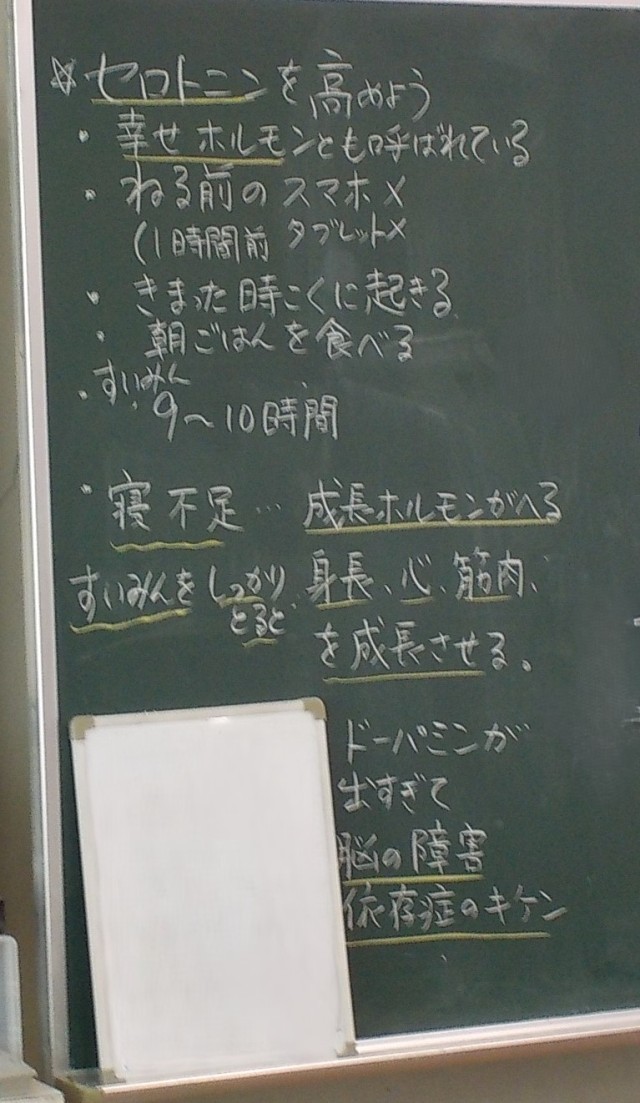 ☆セロトニンを高めよう
・幸せホルモンとも呼ばれている
・ねる前のスマホ×
(1時間前 タブレット×
・きまった時こくに起きる
・朝ごはんを食べる
・すいみん
9〜10時間
・寝不足… 成長ホルモンがへる
すいみんをしっかり 身長、心、筋肉、
とると
を成長させる。
ドーパミンが
出すぎて
脳の障害
依存症のキケン